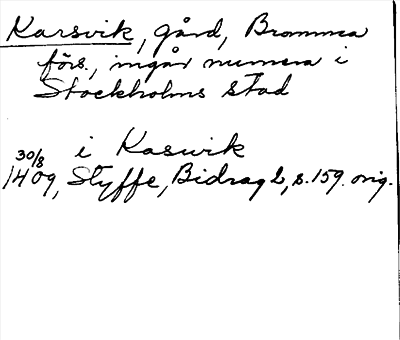 Karsvik, gård, Bromma
förs., ingår numera i
Stockholms stad
i Kaswik
30/8
1409, Styffe, Bidrag 2, s. 159. orig.